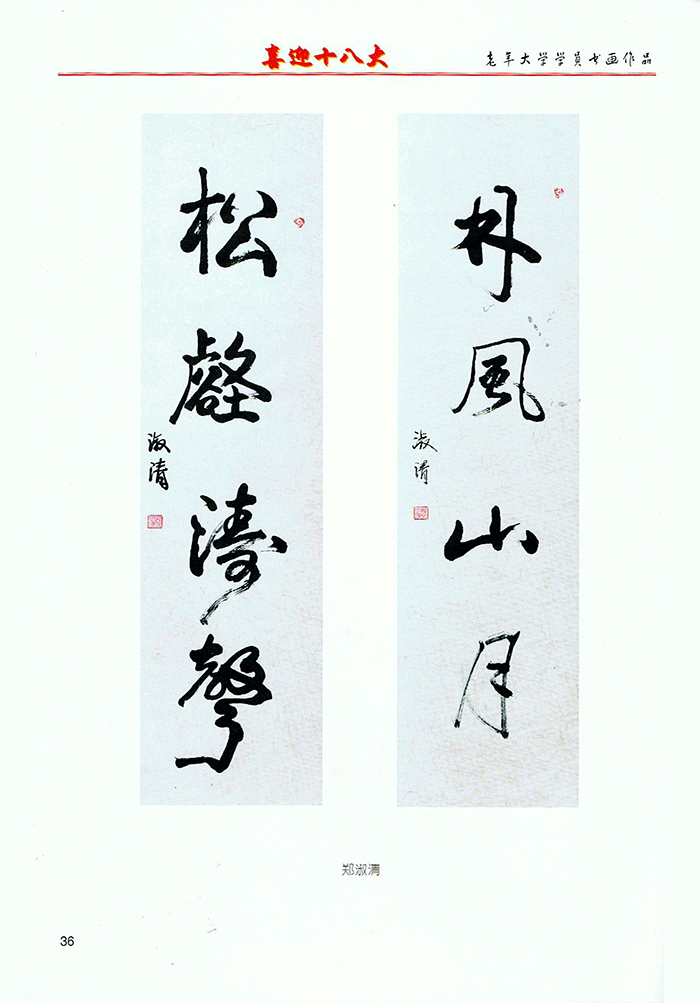 喜迎十八大
老年大学学员书画作品
林風山月
淑清
松壑濤聲
淑清
郑淑清
36